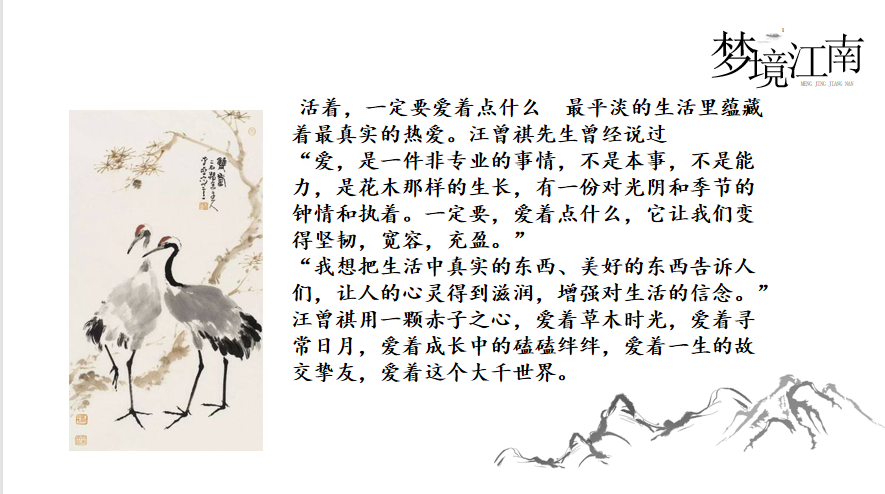 梦境江南
MENG JING JIANG NAN
活着，一定要爱着点什么 最平淡的生活里蕴藏
着最真实的热爱。汪曾祺先生曾经说过
“爱，是一件非专业的事情，不是本事，不是能
力，是花木那样的生长，有一份对光阴和季节的
钟情和执着。一定要，爱着点什么，它让我们变
得坚韧，宽容，充盈。”
“我想把生活中真实的东西、美好的东西告诉人
们，让人的心灵得到滋润，增强对生活的信念。”
汪曾祺用一颗赤子之心，爱着草木时光，爱着寻
常日月，爱着成长中的磕磕绊绊，爱着一生的故
交挚友，爱着这个大千世界。